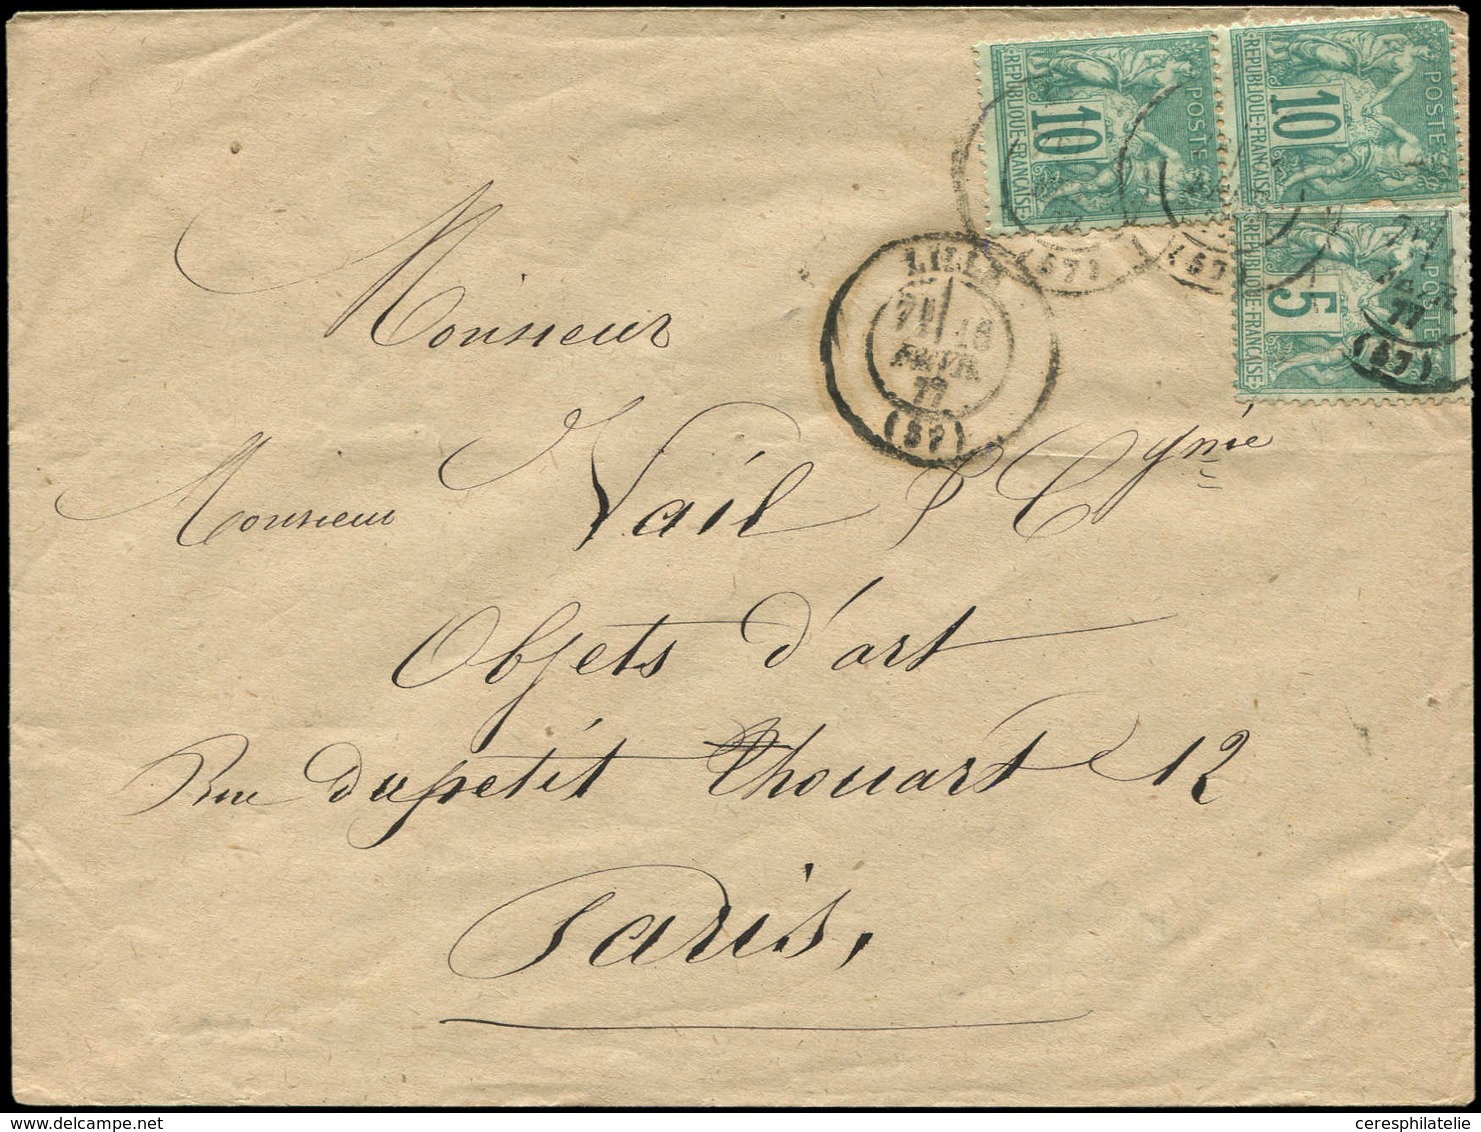 REPUBLIQUE·FRANÇAISE
10
POSTE
REPUBLIQUE·FRANÇAISE
10
POSTE
REPUBLIQUE·FRANÇAISE
5
POSTE
(57)
(57)
77
(57)
LILLE
18
FEVR.
77
(57)
Monsieur
Monsieur Vail & Cgnie
Objets d'art
Rue du petit Thouart 12
Paris,
ceresphilatelie.com